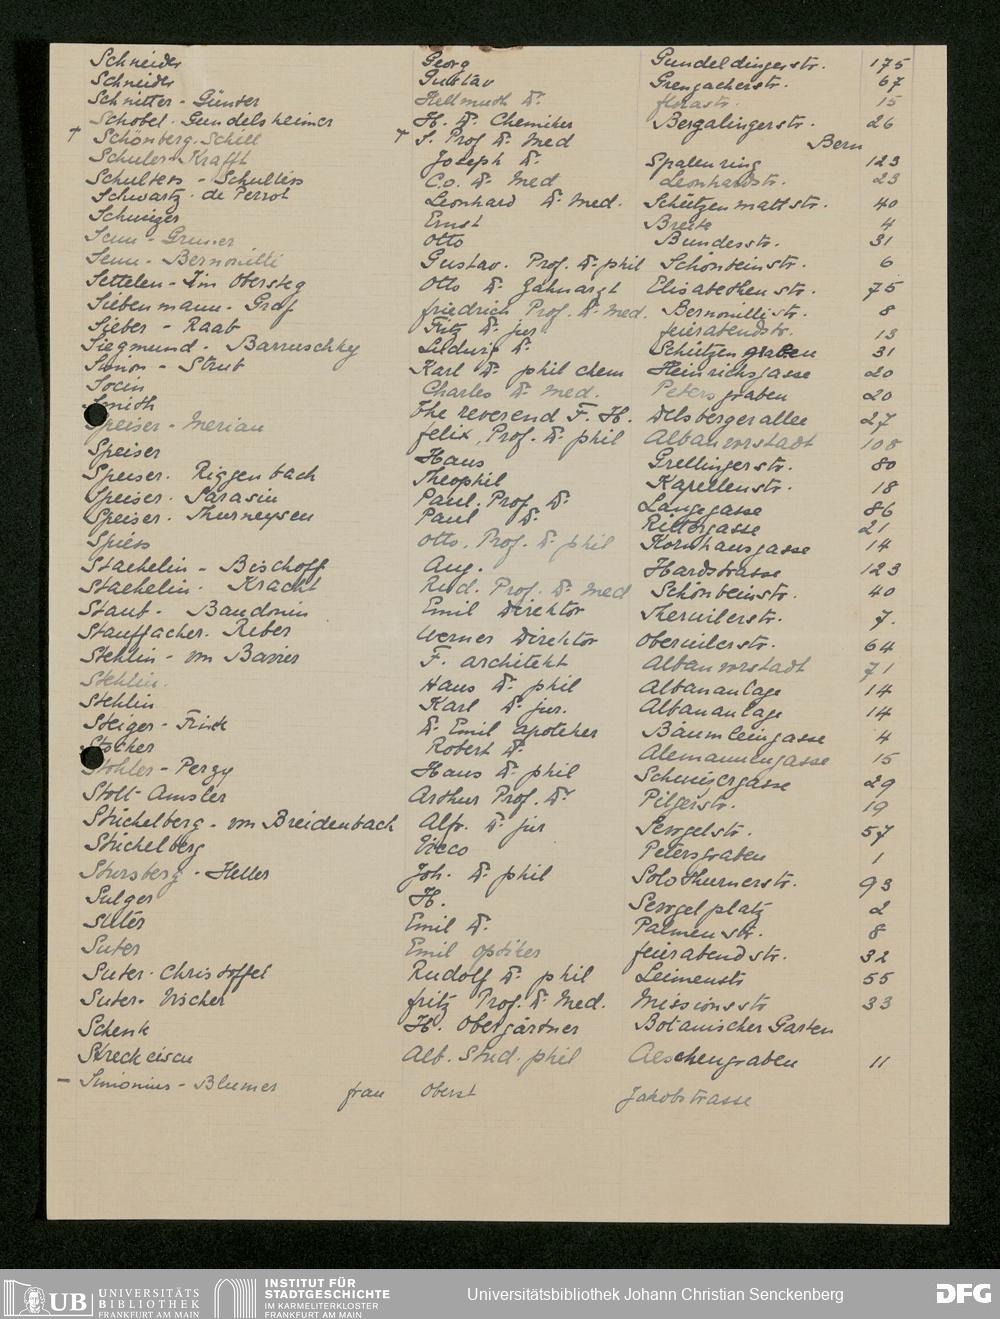 Schneider Georg Gundeldingerstr. 175
Schneider Gustav Grenzacherstr. 67
Schnitter - Günter Hellmuth Dr. florastr. 15
Schobel. Gundelsheimer H. Dr. Chemiker Bergalingerstr. 26
+ Schönberg. Schill + S. Prof. Dr. Med Bern
Schuler-Krafft Joseph Dr. Spalenring 123
Schulters - Schulters C.o. Dr. Med Leonhardstr. 23
Schwartz. de Perrot Leonhard Dr. Med. Schützenmattstr. 40
Schwiger Ernst Breite 4
Senn - Gruner Otto Bundesstr. 31
Senn - Bernoulli Gustav. Prof. Dr. phil Schönbeinstr. 6
Settelen - Im Obersteg Otto Dr. Zahnarzt Elisabethenstr. 75
Siebenmann. Graf friedrich Prof. Dr. Med. Bernoullistr. 8
Sieber - Raab Fritz Dr. jur feierabendstr. 13
Siegmund. Barruschky Ludwig Dr. Schützengraben 31
Simon - Strub Karl Dr. phil chem Heinrichsgasse 20
Socin Charles Dr. Med. Petersgraben 20
Smith The reverend F. H. Delsbergerallee 27
Speiser - Merian felix, Prof. Dr. phil Albanvorstadt 108
Speiser Hans Grellingerstr. 80
Speiser. Riggenbach Theophil Kapellenstr. 18
Speiser. Sarasin Paul. Prof. Dr. Langegasse 86
Speiser. Thurneysen Paul Dr. Rittergasse 21
Spiess Otto. Prof. Dr. phil Kornhausgasse 14
Staehelin - Bischoff Aug. Hardstrasse 123
Staehelin. Kracht Rud. Prof. Dr. Med Schönbeinstr. 40
Staub. Baudouin Emil Direktor Therwilerstr. 7.
Stauffacher. Reber Werner Direktor Oberwilerstr. 64
Stehlin - von Bavier F. architekt Albanvorstadt 71
Stehlin. Hans Dr. phil Albananlage 14
Stehlin Karl Dr. jur. Albananlage 14
Steiger - Frick Dr. Emil apotheker Bäumleingasse 4
Stocker Robert Dr. Alemannengasse 15
Stohler - Pergy Hans Dr. phil Scheuisrgasse 29
Stoll-Amsler Arthur Prof. Dr. Pilgerstr. 19
Stückelberg - von Breidenbach Alfr. Dr. jur Sevogelstr. 57
Stückelberg Vieco Petersgraben 1
Stursberg - Heller Joh. Dr. phil Solothurnerstr. 93
Sulger H. Sevogelplatz 2
Suter Emil Dr. Palmenstr. 8
Suter Emil optiker feierabendstr. 32
Suter. Christoffel Rudolf Dr. phil Leimenstr 55
Suter. Vischer fritz Prof. Dr. Med. Missionsstr 33
Schenk H. Obergärtner Botanischer Garten
Streckeisen Alb. Stud. phil Aeschengraben 11
- Simonius - Blumer frau Oberst Jakobstrasse
UB UNIVERSITÄTS
BIBLIOTHEK
FRANKFURT AM MAIN
INSTITUT FÜR
STADTGESCHICHTE
IM KARMELITERKLOSTER
FRANKFURT AM MAIN
Universitätsbibliothek Johann Christian Senckenberg
DFG